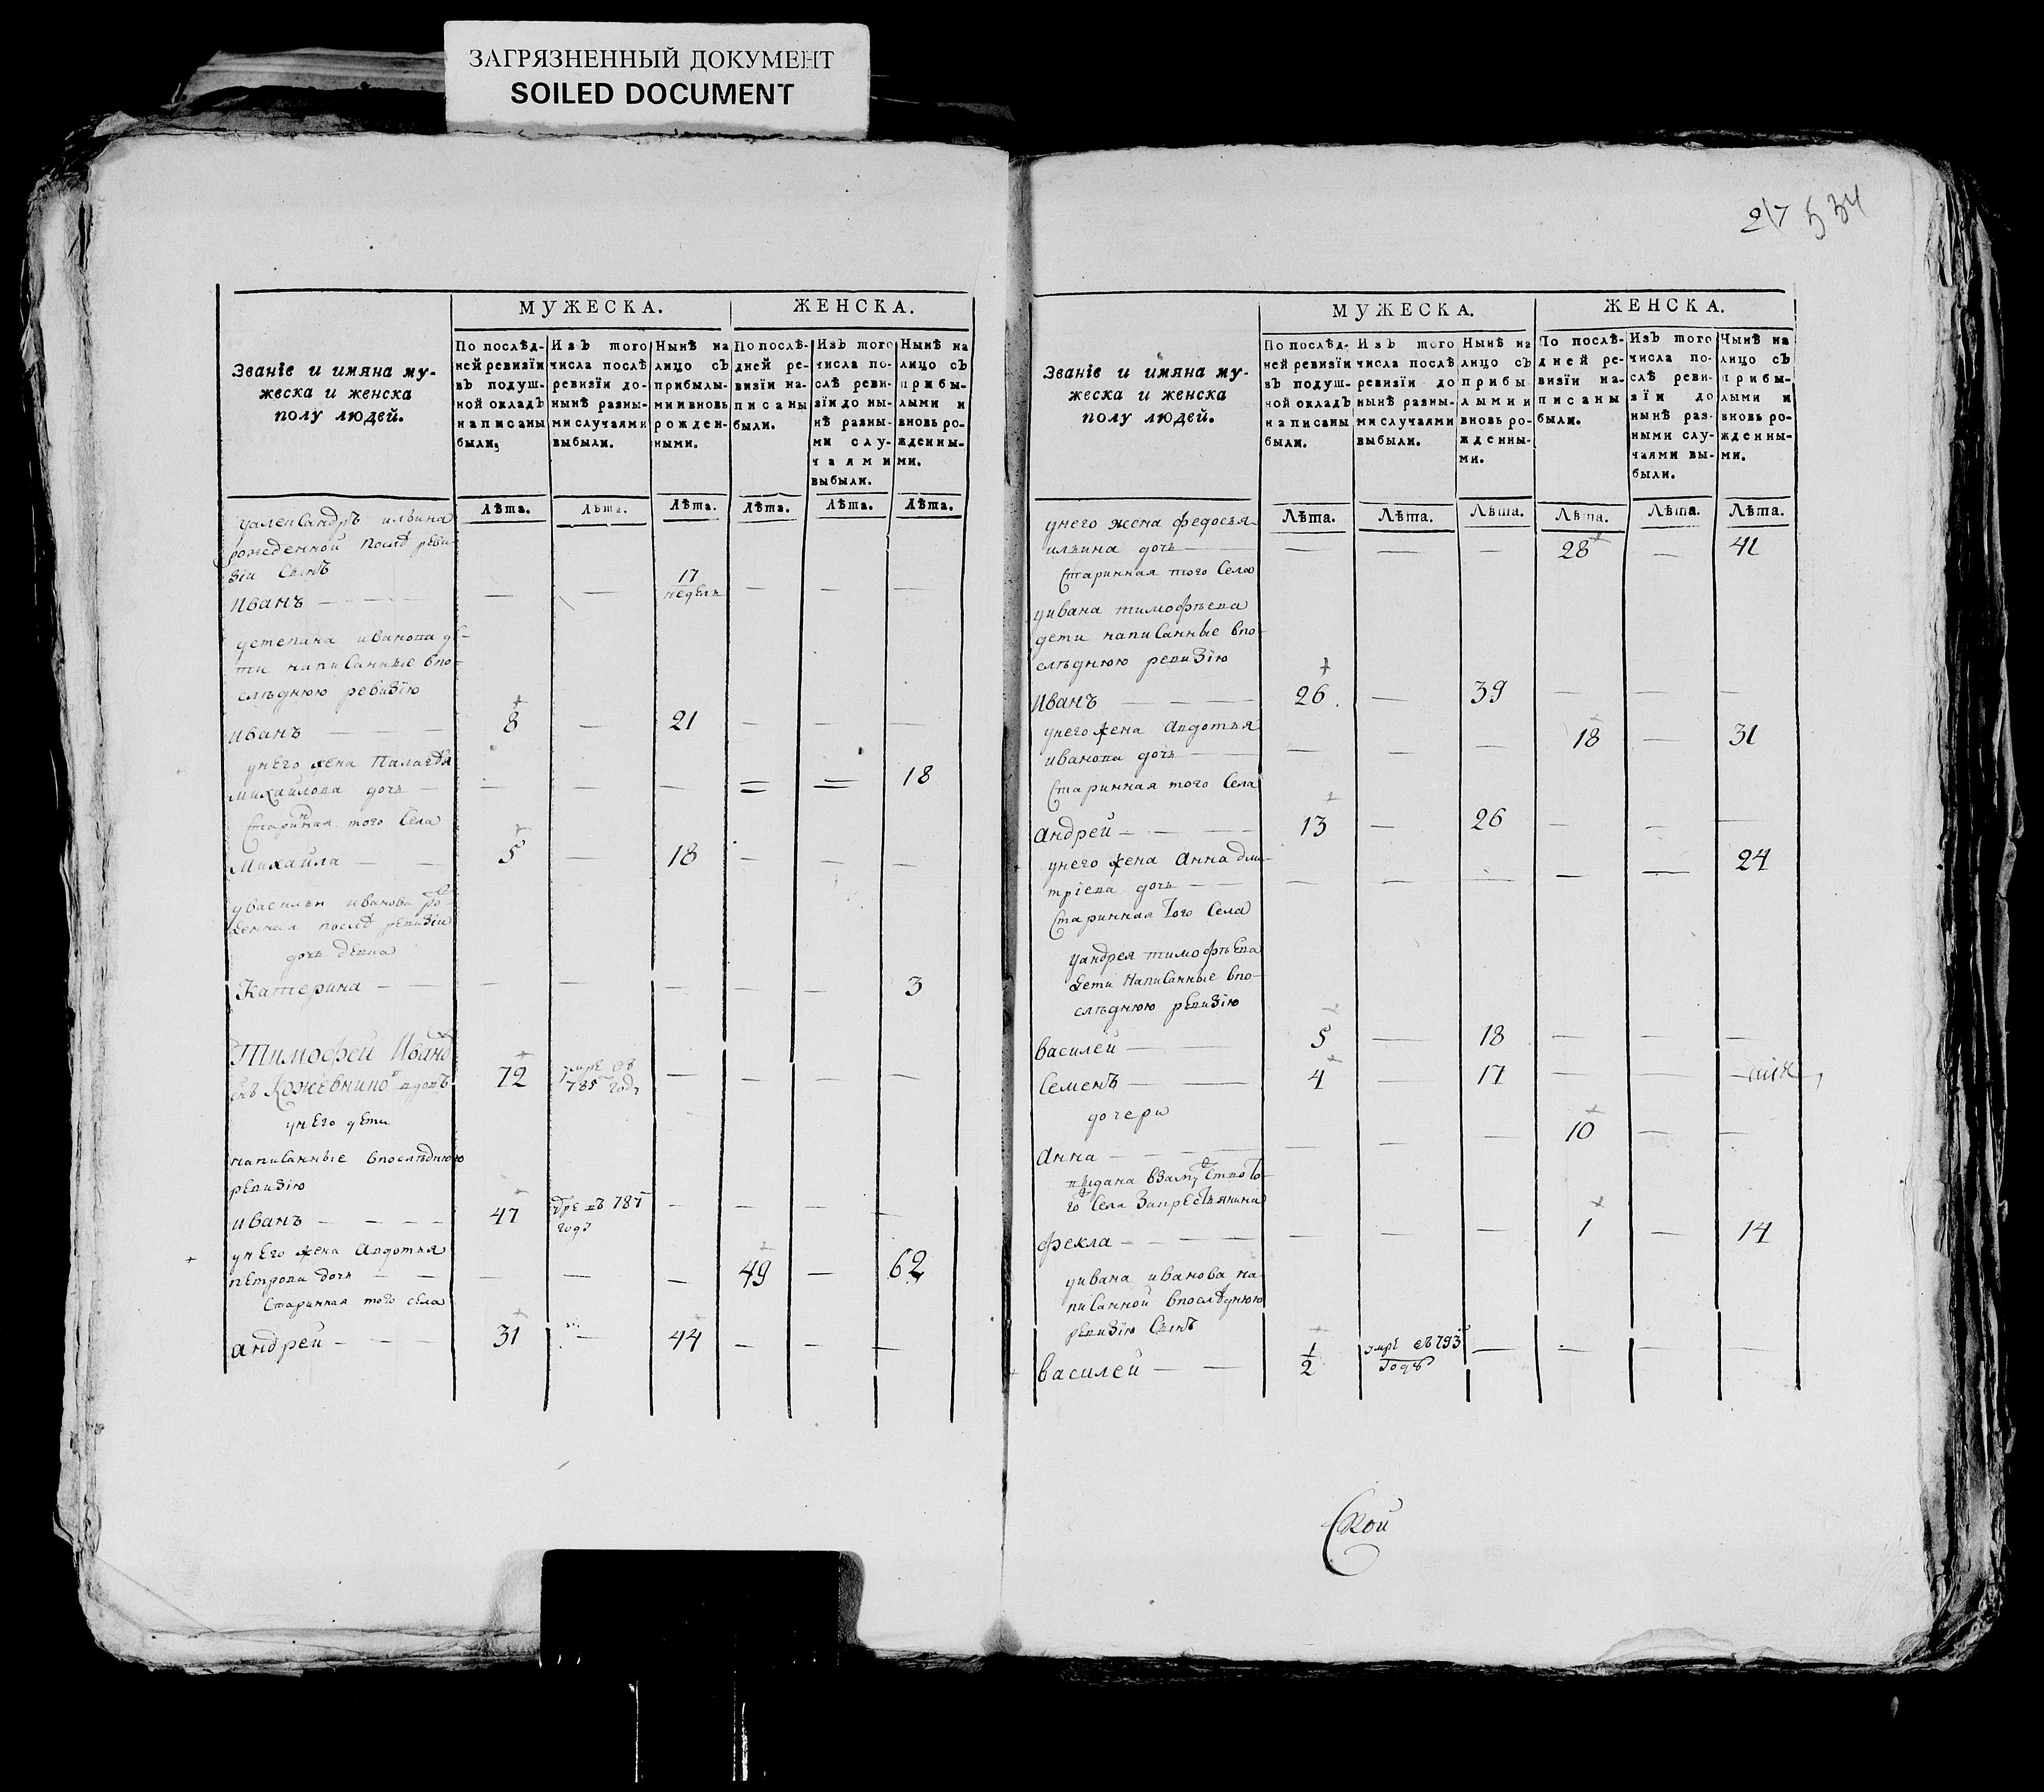 ЗАГРЯЗНЕННЫЙ ДОКУМЕНТ
SOILED DOCUMENT
Званіе и имяна му-
жеска и женска
полу людей.
МУЖЕСКА.
ЖЕНСКА.
По послѣд-
ней ревизіи
въ подуш-
ной окладъ
написаны
были,
Изъ того
числа послѣ
ревизіи до-
нынѣ разны-
ми случаями
выбыли.
Нынѣ на
лицо съ
прибылы-
ми и вновь
рожден-
ными.
По послѣ-
дней ре-
визіи на-
писаны
были.
Изъ того
числа по-
слѣ реви-
зіи до ны-
нѣ разны-
ми слу-
чаями
выбыли.
Нынѣ на
лицо съ
прибы-
лыми и
вновь ро-
жденны-
ми.
Лѣта. Лѣта. Лѣта. Лѣта. Лѣта. Лѣта.
уалександръ ильина
рожденной послѣ реви-
зіи сынъ
Иванъ — — — 17 недель — — —
устепана иванова дѣ-
ти написанные впо-
слѣднюю ревизію
иванъ — 8 — 21 — — —
унего жена Палагѣя
михайлова дочь — — — — = = 18
Старинная того Села
Михайла — 5 — 18 — — —
увасилья иванова ро-
денная послѣ ревизіи
дочь девка
Катерина — — — — — — 3
Тимофей Ивано
72 умре въ 785 году — — — —
унего дети
написанные впослѣднюю
ревизію
иванъ — 47 787 году — — — —
унего жена Авдотья
петрова дочь — — — — 49 — 62
Старинная того села
андрей — 31 — 44 — — —
217 534
Званіе и имяна му-
жеска и женска
полу людей.
МУЖЕСКА.
ЖЕНСКА.
По послѣд-
ней ревизіи
въ подуш-
ной окладъ
написаны
были.
Изъ того
числа послѣ
ревизіи до
нынѣ разны-
ми случаями
выбыли.
Нынѣ на
лицо съ
прибы
лыми и
вновь ро-
жденны-
ми.
По послѣ-
дней ре-
визіи на-
писаны
были.
Изъ того
числа по-
слѣ реви-
зіи до
нынѣ раз-
ными слу-
чаями вы-
были.
Нынѣ на
лицо съ
прибы-
лыми и
вновь ро-
жденны-
ми.
Лѣта. Лѣта. Лѣта. Лѣта. Лѣта. Лѣта.
унего жена федосья
ильина дочь — — — — 28 — 41
Старинная того Села
уивана тимофѣева
дети написанные впо
слѣднюю ревизію
Иванъ — 26. — 39 — — —
унего жена Авдотья
иванова дочь — — — — 18 — 31
Старинная того Села
андрей — 13 — 26 — — —
унего жена Анна дми-
тріева дочь — — — — — — 24
Старинная того Села
уандрея тимофѣева
дети написанные впо-
слѣднюю ревизію
василей — 5 — 18 — — —
Семенъ — 4 — 17 — — —
дочери
Анна — — — — 10 — —
го Села
фекла — — — — 1 — 14
уивана иванова на-
писанной впослѣднюю
ревизію сынъ
василей — 1/2 умре въ 793 годѣ — — — —
Ской